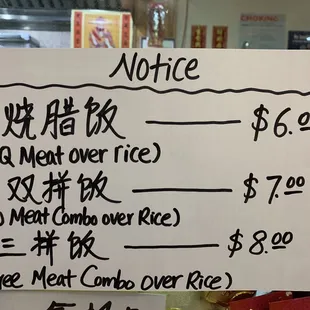 Notice
烧腊饭 $6.0
Q Meat over rice)
双拼饭 $7.00
Meat Combo over Rice)
三拼饭 $8.00
ree Meat Combo over Rice)